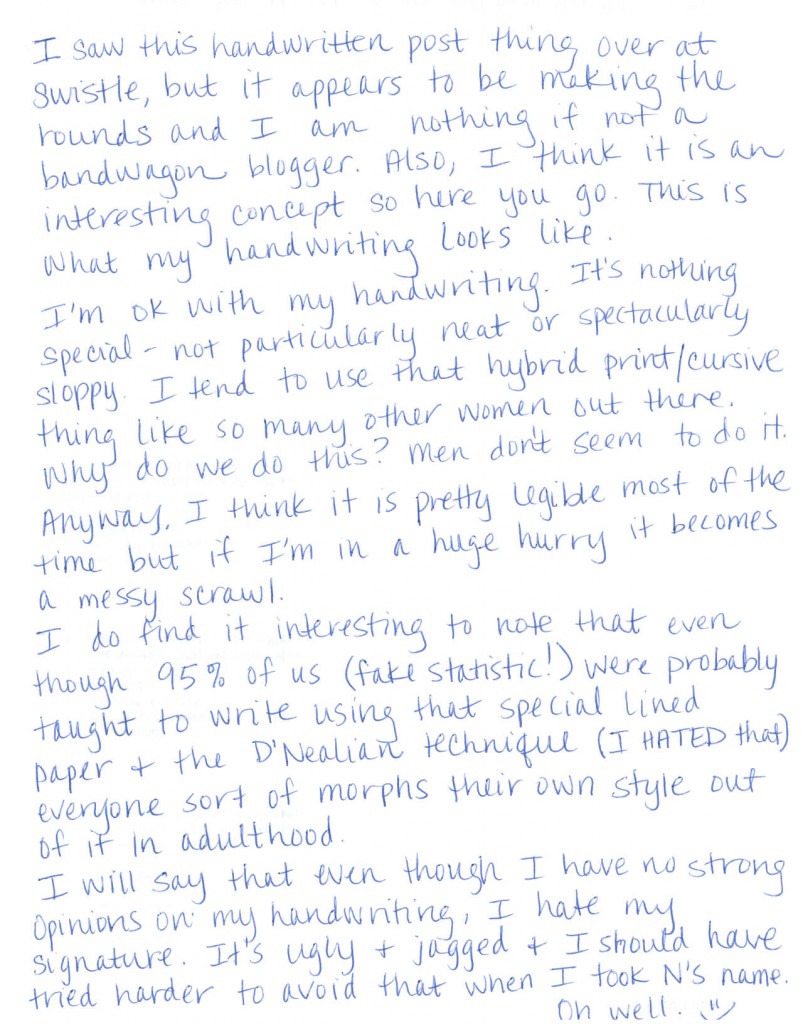 I saw this handwritten post thing over at
Swistle, but it appears to be making the
rounds and I am nothing if not a
bandwagon blogger. Also, I think it is an
interesting concept so here you go. This is
what my handwriting looks like.
I'm ok with my handwriting. It's nothing
special - not particularly neat or spectacularly
sloppy. I tend to use that hybrid print/cursive
thing like so many other women out there.
Why do we do this? Men don't seem to do it.
Anyway, I think it is pretty legible most of the
time but if I'm in a huge hurry it becomes
a messy scrawl.
I do find it interesting to note that even
though 95% of us (fake statistic!) were probably
taught to write using that special lined
paper + the D'Nealian technique (I HATED that)
everyone sort of morphs their own style out
of it in adulthood.
I will say that even though I have no strong
opinions on my handwriting, I hate my
signature. It's ugly + jagged + I should have
tried harder to avoid that when I took N's name.
Oh well. ")